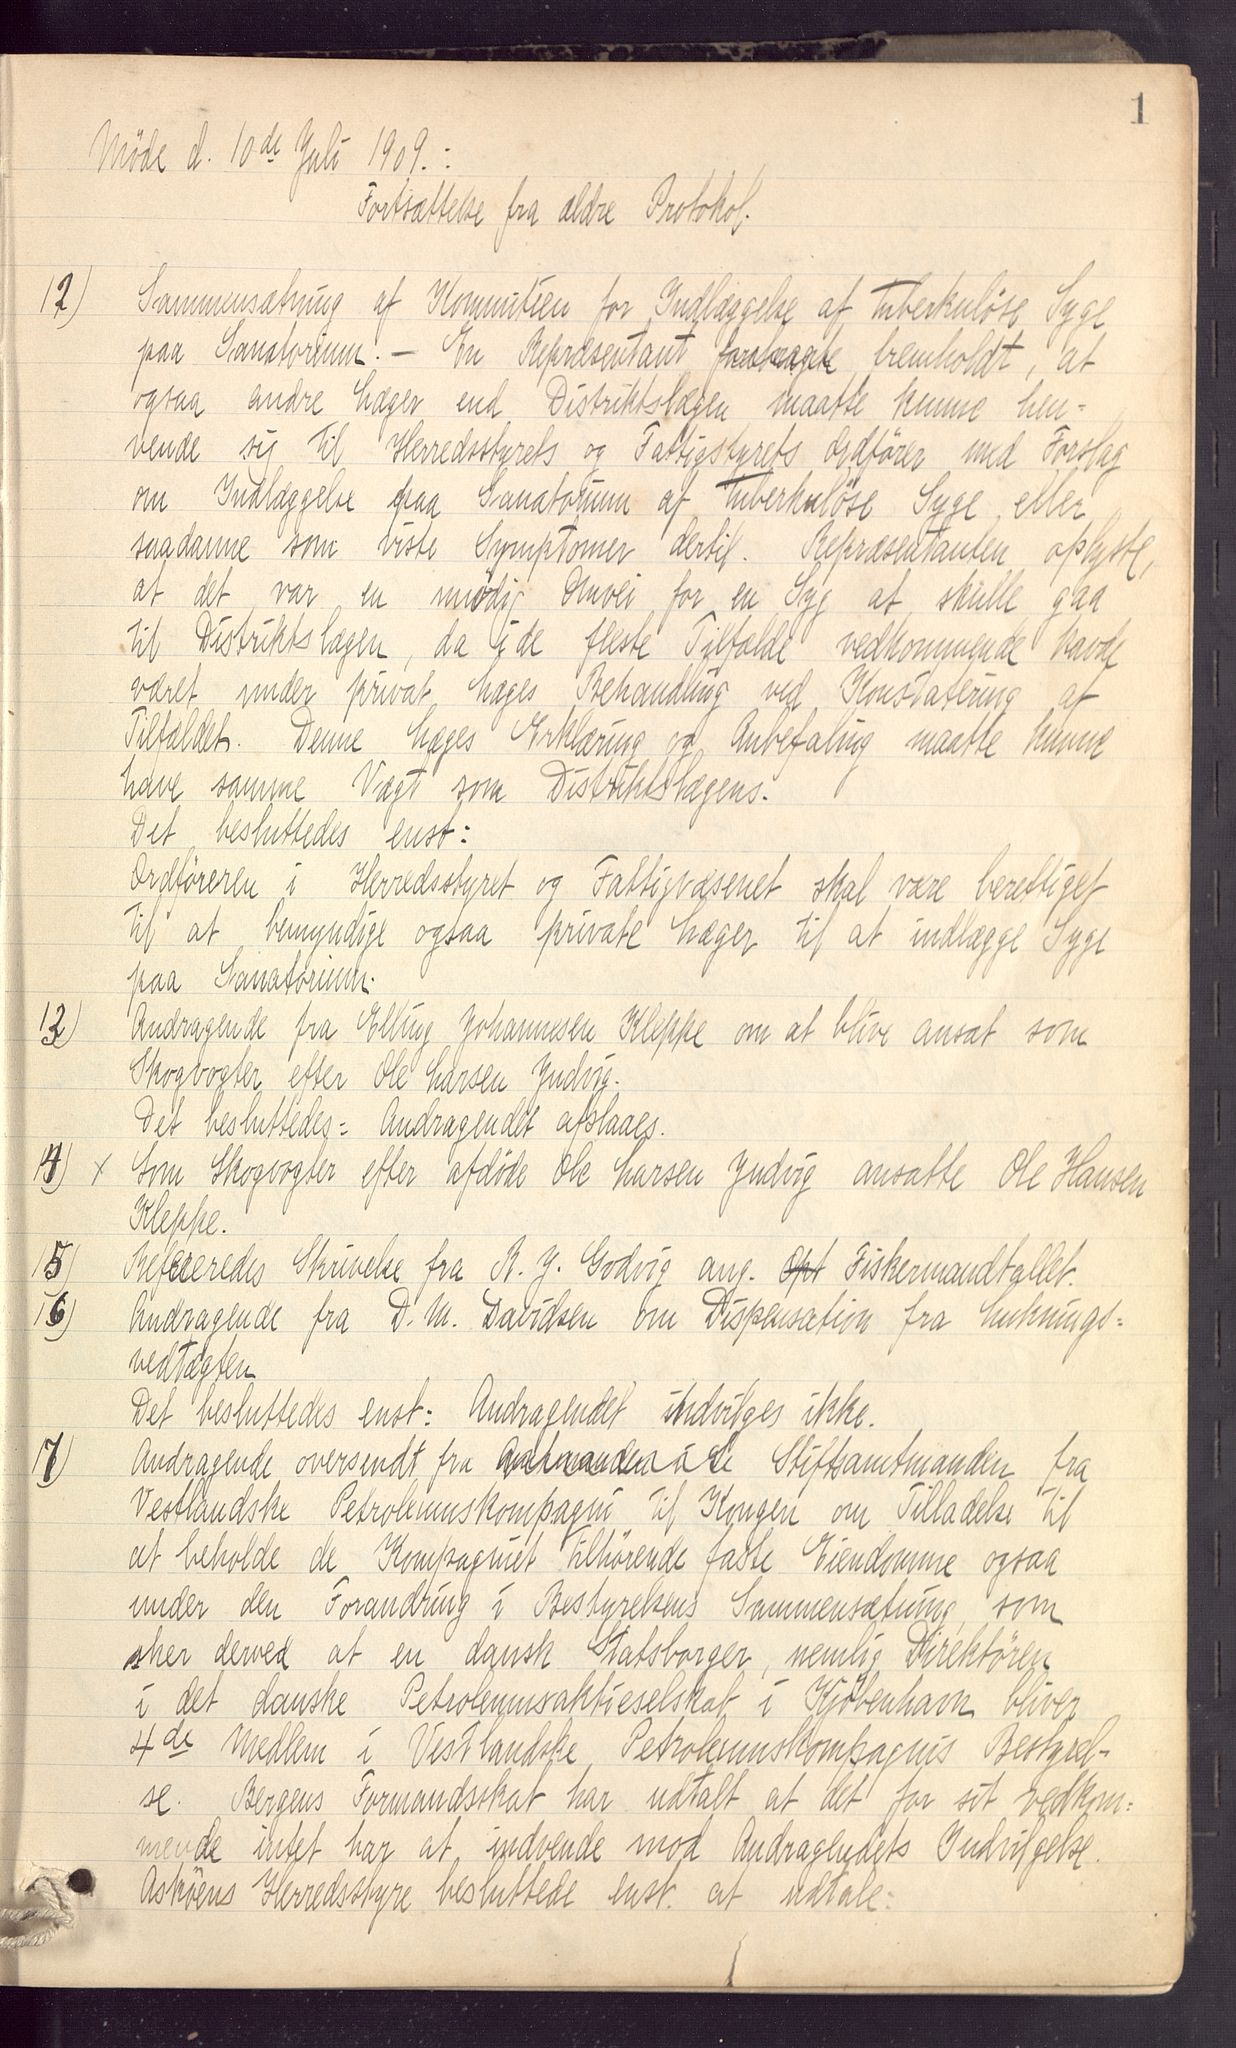 1
Möde d. 10de Juli 1909.:
Fortsættelse fra ældre Protokol.
12) Sammensætning af Komiteen for Indlæggelse af tuberkulöse Syge
paa Sanatorium. — En Repræsentant fremholdt, at
ogsaa andre Læger end Distriktslægen maatte kunne hen-
vende sig til Herredsstyrets og Fattigstyrets Ordförer med Forslag
om Indlæggelse paa Sanatorium af tuberkulöse Syge eller
saadanne som viste Symptomer dertil. Repræsentanten oplyste,
at det var en unödig Omvei for en Syg at skulle gaa
til Distriktslægen, da i de fleste Tilfælde vedkommende havde
været under privat Læges Behandling ved Konstatering af
Tilfældet. Denne Læges Erklæring og Anbefaling maatte kunne
have samme Vægt som Distriktslægens.
Det besluttedes enst:
Ordföreren i Herredsstyret og Fattigvæsenet skal være berettiget
til at bemyndige ogsaa private Læger til at indlægge Syge
paa Sanatorium.
13) Andragende fra Elling Johannesen Kleppe om at blive ansat som
Skogvogter efter Ole Larsen Judvig.
Det besluttedes: Andragendet afslaaes.
14) x Som Skogvogter efter afdöde Ole Larsen Judvig ansatte Ole Hansen
Kleppe.
15) Refereredes Skrivelse fra R. J. Godvig ang. Opt Fiskermandtallet.
16) Andragende fra D. M. Davidsen om Dispensation fra Luknings-
vedtægten
Det besluttedes enst: Andragendet indvilges ikke.
17) Andragende oversendt fra Stiftsamtmanden fra
Vestlandske Petroleumskompagni til Kongen om Tilladelse til
at beholde de Kompagniet tilhörende faste Eiendomme ogsaa
under den Forandring i Bestyrelsens Sammensætning som
sker derved at en dansk Statsborger, nemlig Direktören
i det danske Petroleumsaktieselskab i Kjöbenhavn bliver
4de Medlem i Vestlandske Petroleumskompagnis Bestyrel-
se. Bergens Formandsskab har udtalt at det for sit vedkom-
mende intet har at indvende mod Andragendets Indvilgelse.
Asköens Herredsstyre besluttede enst. at udtale: